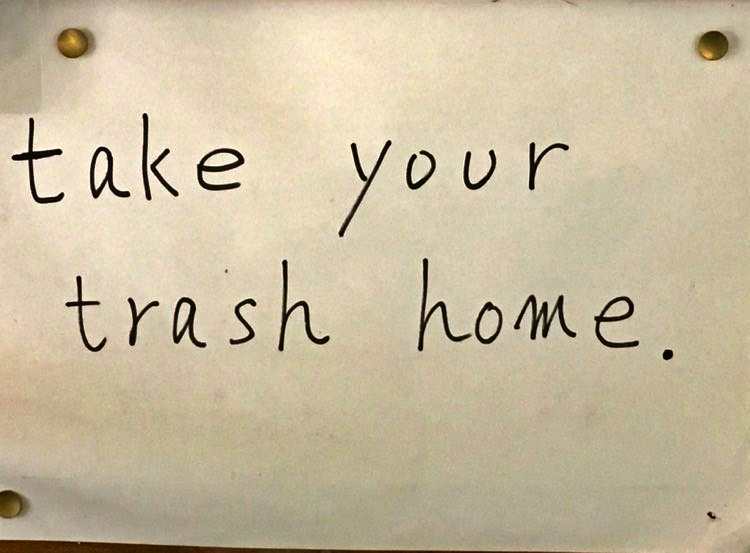 take your
trash home.